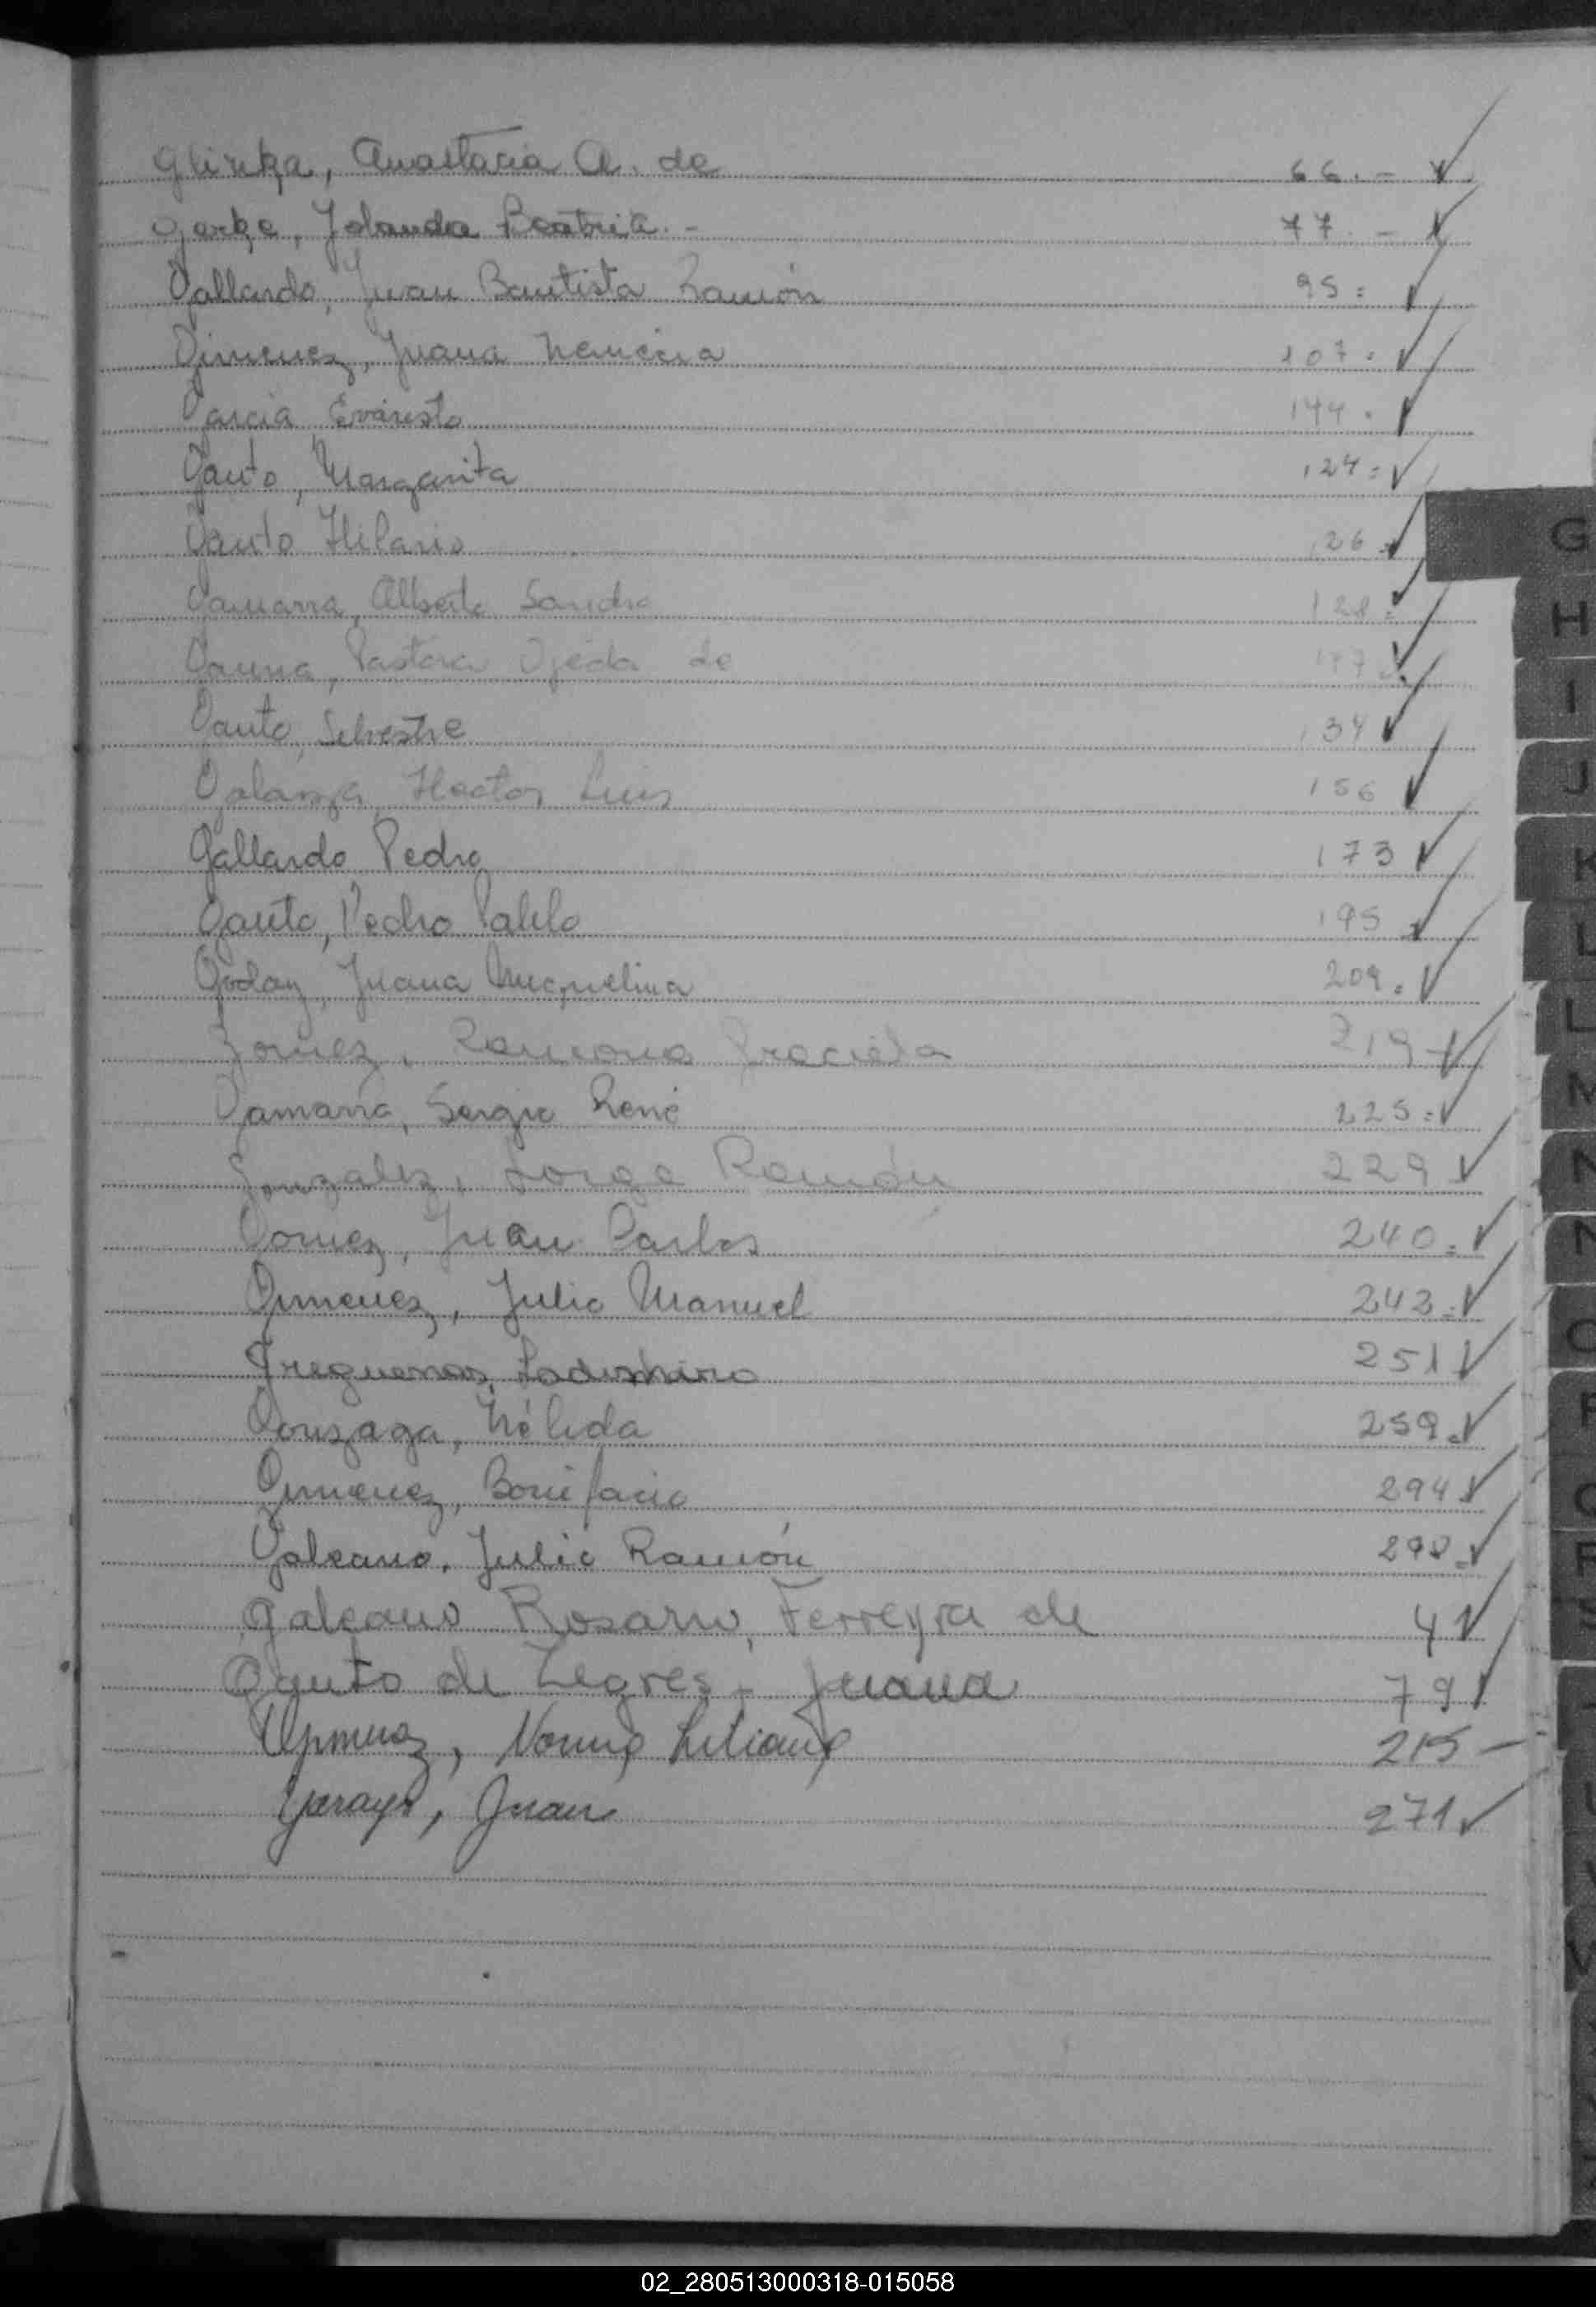 Glinka, Anastacia A. de 66.- ✓
Gerke, Yolanda Beatriz.- 77.- ✓
Gallardo, Juan Bautista Ramón 95= ✓
Gimenez, Juana Nemecia 107. ✓
Garcia Evaristo 144. ✓
Gauto, Margarita 124= ✓
Gauto Hilario 126 ✓
Gamarra, Alberto Sandro 128= ✓
Pastora Ojeda de ✓
Gauto, Silvestre 134 ✓
Galarza, Hector Luis 156 ✓
Gallardo Pedro 173 ✓
Gauto, Pedro Pablo 195 ✓
Godoy, Juana Miquelina 209. ✓
Gomez, Ramona Graciela 219 ✓
Gamarra, Sergio René 225= ✓
Gonzalez, Jorge Ramón 229 ✓
Gomez, Juan Carlos 240= ✓
Gimenez, Julio Manuel 243= ✓
251 ✓
Gonzaga, Nélida 259. ✓
Gimenez, Bonifacio 294 ✓
Galeano, Julio Ramón 298. ✓
Galeano Rosario, Ferreyra de 4 ✓
Gauto de Legres - Juana 79 ✓
Gimenez, Norma Liliana 215 -
Garay, Juan 271 ✓
G
H
I
J
K
L
L
M
N
N
O
P
Q
R
S
V
02_280513000318-015058